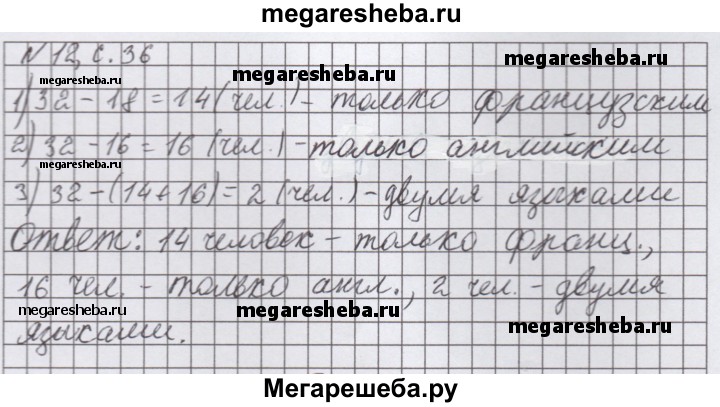 megaresheba.ru
N 12, с. 36
megaresheba.ru megaresheba.ru megaresheba.ru
1) 32 - 18 = 14 (чел.) - только французским
2) 32 - 16 = 16 (чел.) - только английским
megaresheba.ru
3) 32 - (14 + 16) = 2 (чел.) - двумя языками
Ответ: 14 человек - только франц.,
16 чел. - только англ., 2 чел. - двумя
megaresheba.ru megaresheba.ru megaresheba.ru
языками.
Мегарешеба.ру